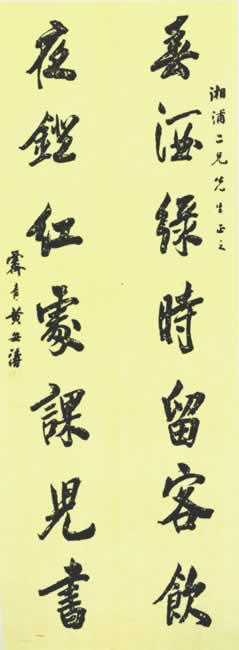 湘浦二兄先生正之
春酒綠時留客飲
夜鐙紅處課兒書
霽青黃安濤